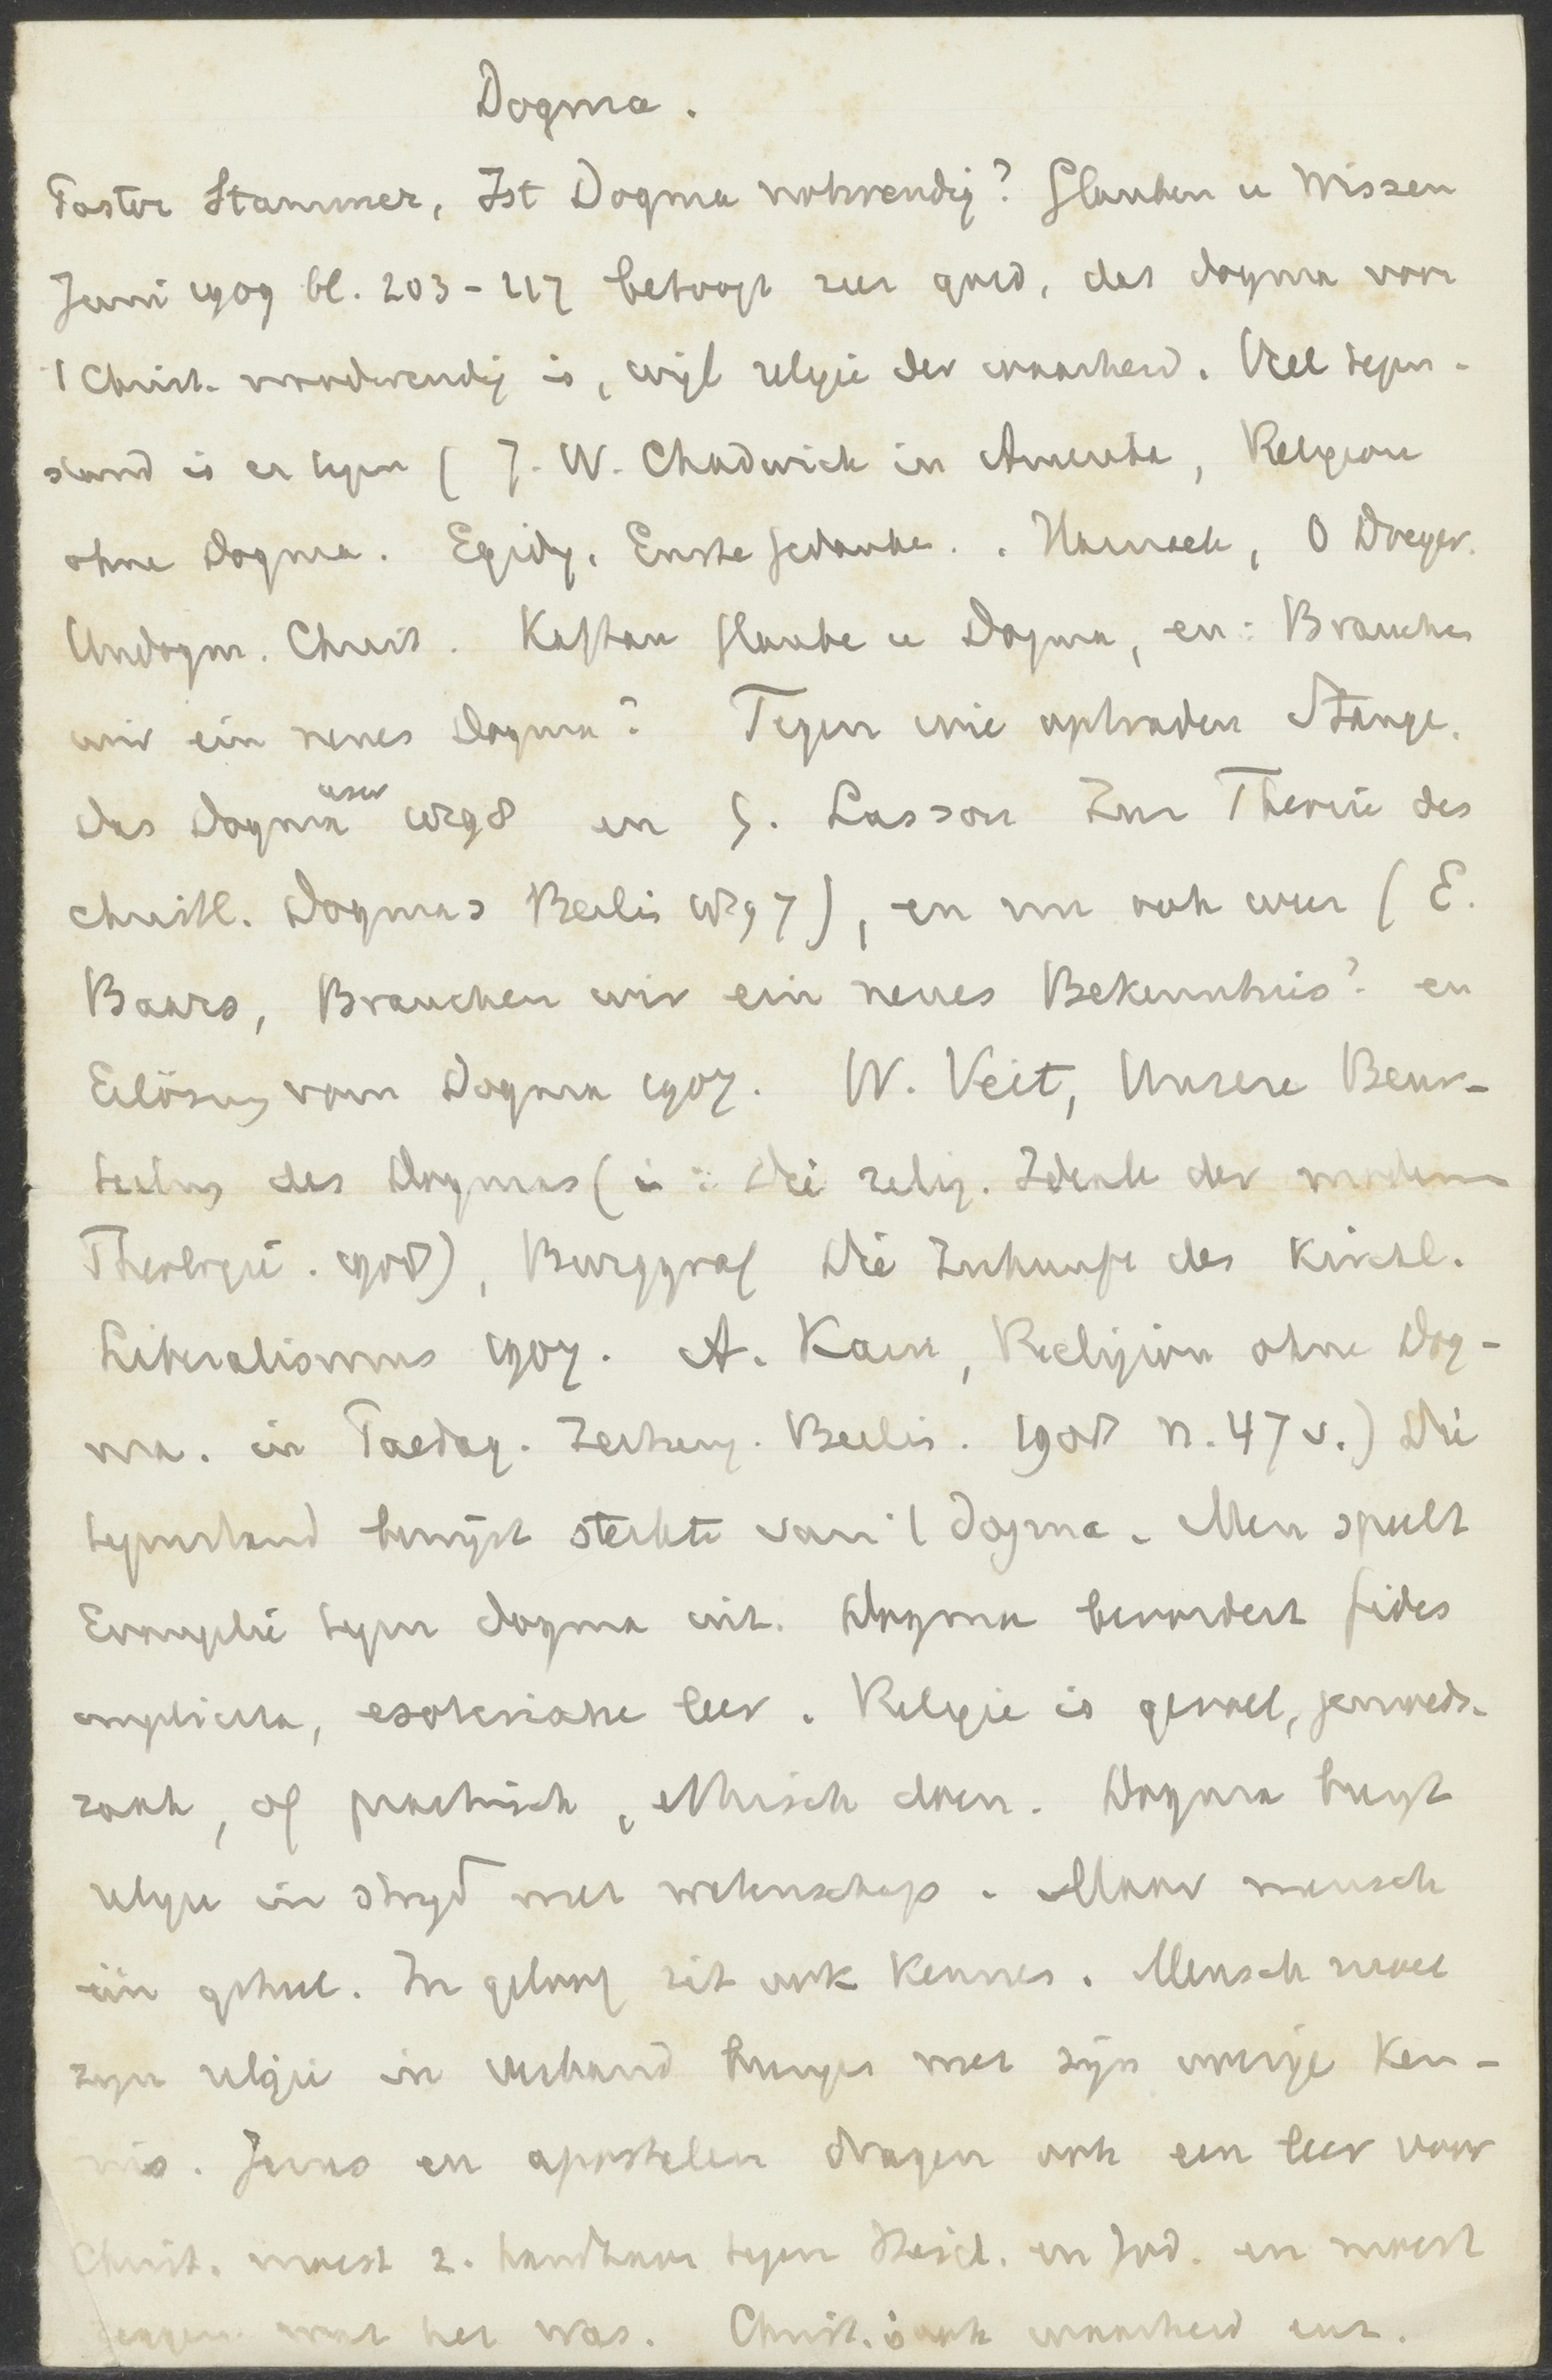 Dogma.
Pastor Stammer, Ist Dogma notwendig? Glauben u Wissen
Juni 1909 bl. 203-217 betoogt zeer goed, dat dogma voor
't Christ. noodwendig is, wijl religie der waarheid. Veel tegen-
stand is er tegen (J. W. Chadwick in Amerika, Religion
ohne Dogma. Egidy, Ernste Gedanke.. Harnack, O Dreyer.
Undogm. Christ. Kaftan Glaube u Dogma, en: Brauchen
wir ein neues Dogma? Tegen wie optraden Stange.
Das Dogma user 1898 en G. Lasson Zur Theorie des
christl. Dogmas Berlin 1897), en nu ook weer (E.
Baars, Brauchen wir ein neues Bekenntnis? en
Erlösung vom Dogma 1907. W. Veit, Unsere Beur-
teilung des Dogmas (in: Die relig. Ideale der modernen
Theologie. 1908), Burggraf Die Zukunft des kirchl.
Liberalismus 1907. A. Kam, Religion ohne Dog-
ma. in Paedag. Zeitung. Berlin. 1908 n. 47 v.) Die
tegenstand bewijst sterkte van 't dogma. Men speelt
Evangelie tegen dogma uit. Dogma bevordert fides
implicita, esoterische leer. Religie is gevoel, gemoeds-
zaak, of practisch, ethisch doen. Dogma brengt
religie in strijd met wetenschap. Maar mensch
één geheel. In geloof zit ook kennis. Mensch moet
zijn religie in verband brengen met zijn overige ken-
nis. Jezus en apostelen dragen ook een leer voor
Christ. moest z. handhaven tegen Heid. en Jod. en moest
zeggen wat het was. Christ. is ook waarheid enz.